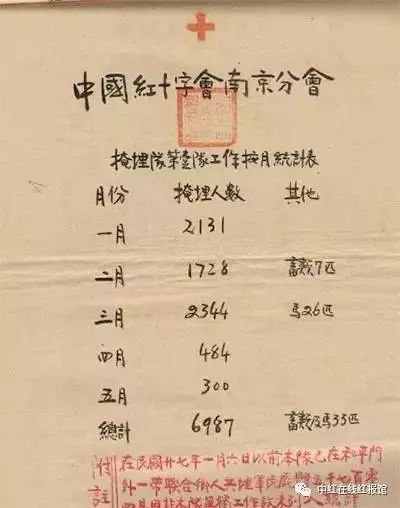 中國紅十字會南京分會
掩埋隊第壹隊工作按月統計表
月份 掩埋人數 其他
一月 2131
二月 1728 畜類7匹
三月 2344 馬26匹
四月 484
五月 300
總計 6987 畜類及馬33匹
附註 在民國廿七年一月六日以前本隊已在和平門
外一帶聯合掛人共埋軍民
四月因非本隊
中红在线红报馆